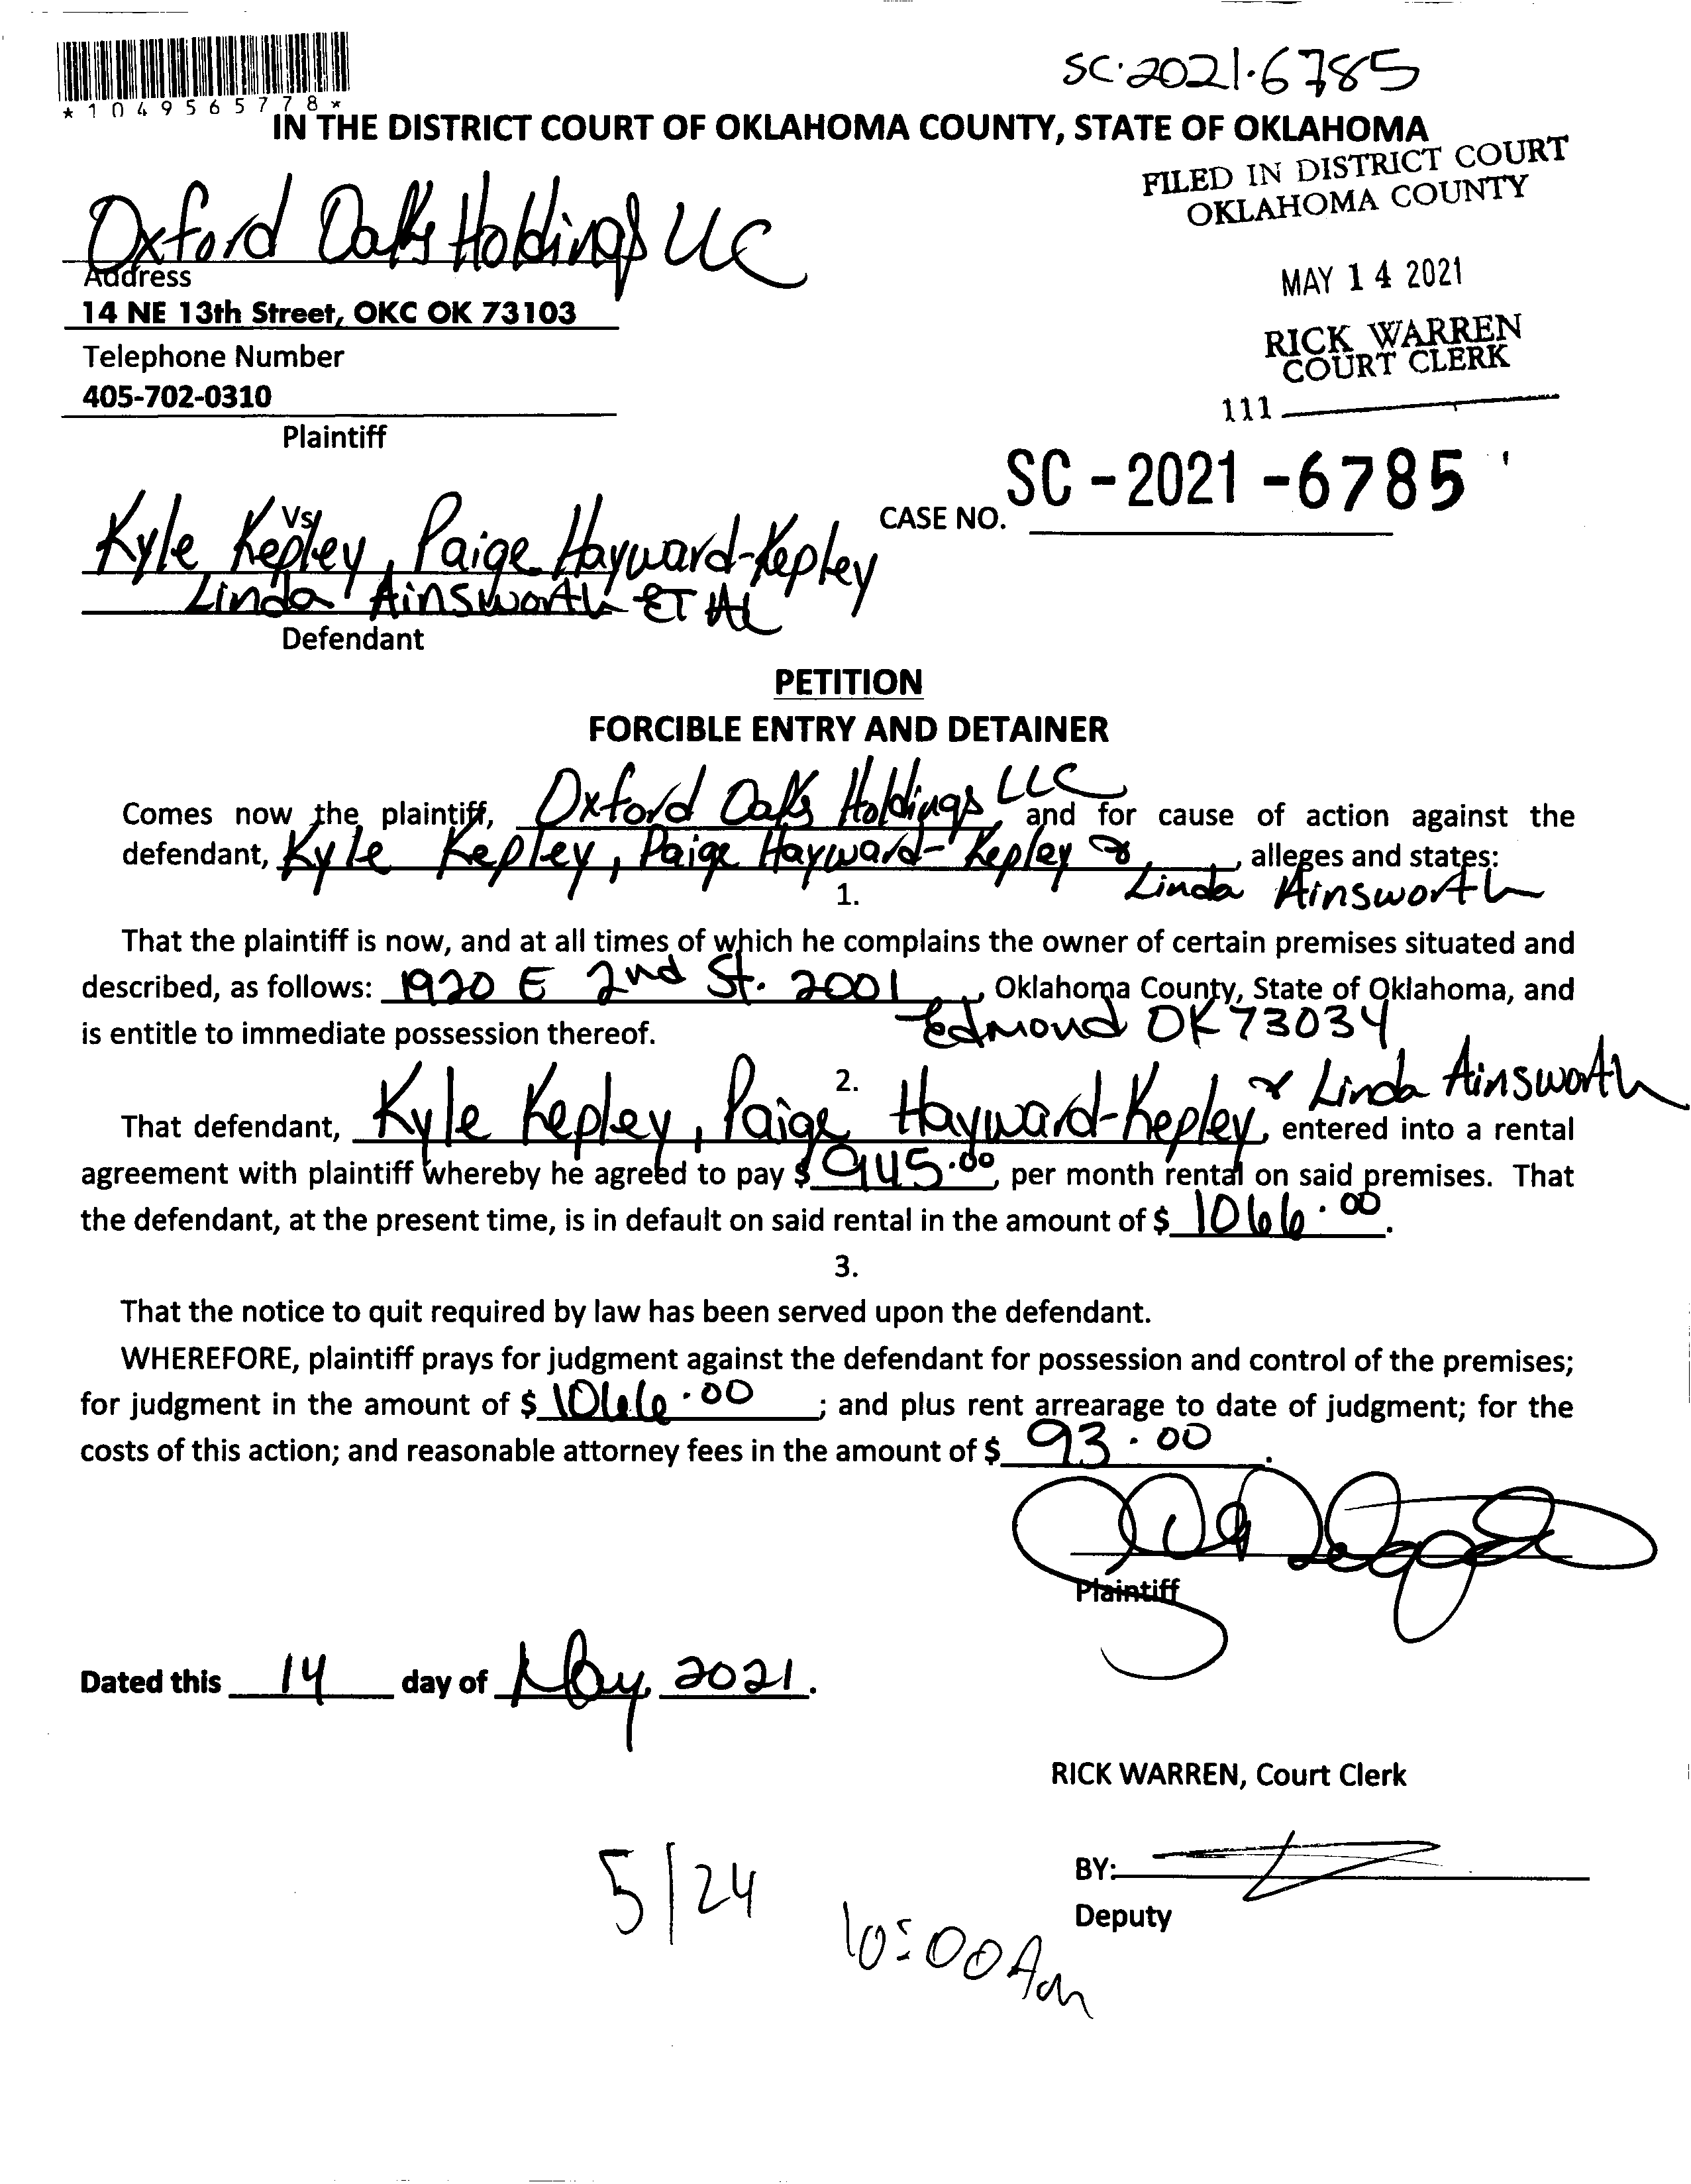 SC·2021·6785
*1049565778*
IN THE DISTRICT COURT OF OKLAHOMA COUNTY, STATE OF OKLAHOMA
FILED IN DISTRICT COURT
OKLAHOMA COUNTY
MAY 14 2021
RICK WARREN
COURT CLERK
111
Oxford Oaks Holdings LLC
Address
14 NE 13th Street, OKC OK 73103
Telephone Number
405-702-0310
Plaintiff
Vs
CASE NO. SC-2021-6785
Kyle Kepley, Paige Hayward-Kepley
Linda Ainsworth ET AL
Defendant
PETITION
FORCIBLE ENTRY AND DETAINER
Comes now the plaintiff, Oxford Oaks Holdings LLC and for cause of action against the
defendant, Kyle Kepley, Paige Hayward-Kepley &, alleges and states:
Linda Ainsworth
1.
That the plaintiff is now, and at all times of which he complains the owner of certain premises situated and
described, as follows: 1920 E 2nd St. 2001, Oklahoma County, State of Oklahoma, and
is entitle to immediate possession thereof. Edmond OK 73034
2.
& Linda Ainsworth
That defendant, Kyle Kepley, Paige Hayward-Kepley, entered into a rental
agreement with plaintiff whereby he agreed to pay $ 945.00, per month rental on said premises. That
the defendant, at the present time, is in default on said rental in the amount of $ 1066.00.
3.
That the notice to quit required by law has been served upon the defendant.
WHEREFORE, plaintiff prays for judgment against the defendant for possession and control of the premises;
for judgment in the amount of $ 1066.00; and plus rent arrearage to date of judgment; for the
costs of this action; and reasonable attorney fees in the amount of $ 93.00.
Plaintiff
Dated this 14 day of May, 2021.
RICK WARREN, Court Clerk
BY:
Deputy
5/24
10:00 Am